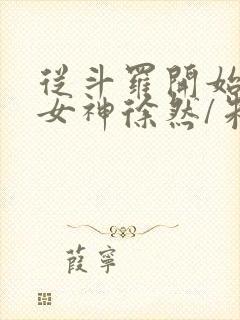 從斗羅開始
女神徐然/
葭寧